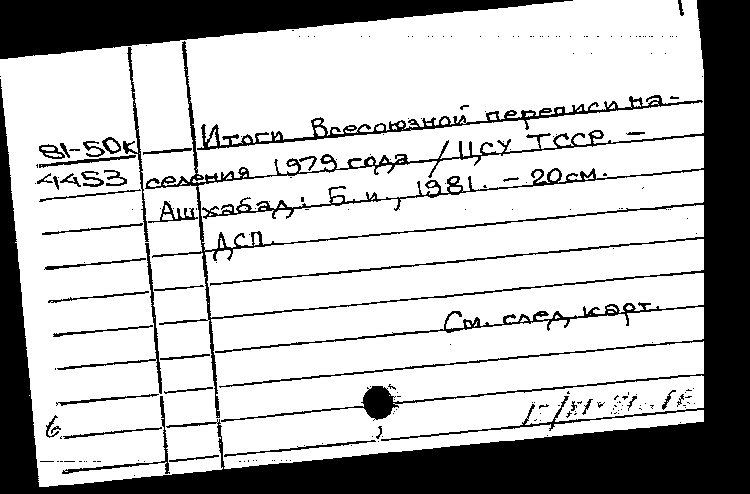 81-50к
4453
Итоги Всесоюзной переписи на-
селения 1979 года / ЦСУ ТССР. -
Ашхабад: Б.и, 1981. - 20 см.
ДСП.
См. след. карт.
6